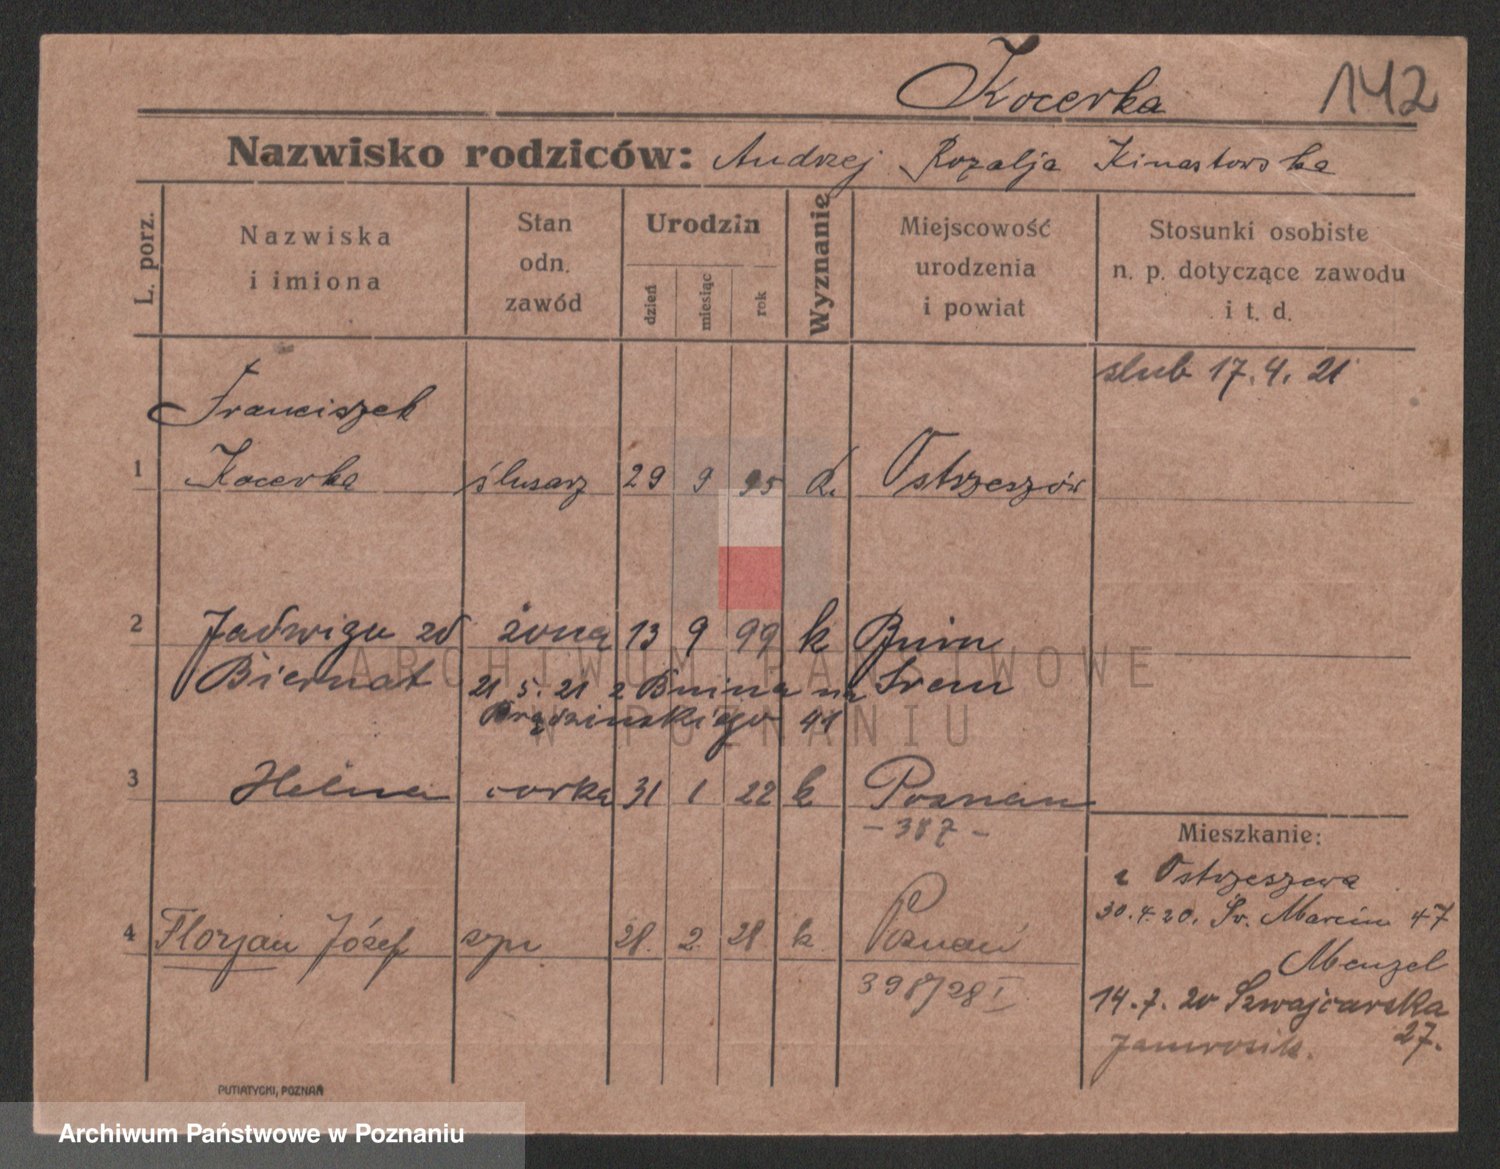 Kocerka
142
Nazwisko rodziców: Andrzej Rozalja Kinastowska
L. porz.
Nazwiska
i imiona
Stan
odn.
zawód
Urodzin
dzień
miesiąc
rok
Wyznanie
Miejscowość
urodzenia
i powiat
Stosunki osobiste
n. p. dotyczące zawodu
i t. d.
slub 17.4.21
Franciszek
1 Kocerka ślusarz 29 9 95 k. Ostrzeszów
2 Jadwiga zd żona 13 9 99 k Bnin
Biernat 21.5.21 z Bnina na Śrem
41
3 Helena corka 31 1 22 k Poznan
- 387 -
Mieszkanie:
z Ostrzeszowa
30.4.20. Św. Marcin 47
4 Florjan Józef syn 28. 2. 28 k. Poznań
Menzel
398/28 I
14.7.20 Szwajcarska
27.
PUTIATYCKI, POZNAŃ
ARCHIWUM PAŃSTWOWE
W POZNANIU
Archiwum Państwowe w Poznaniu